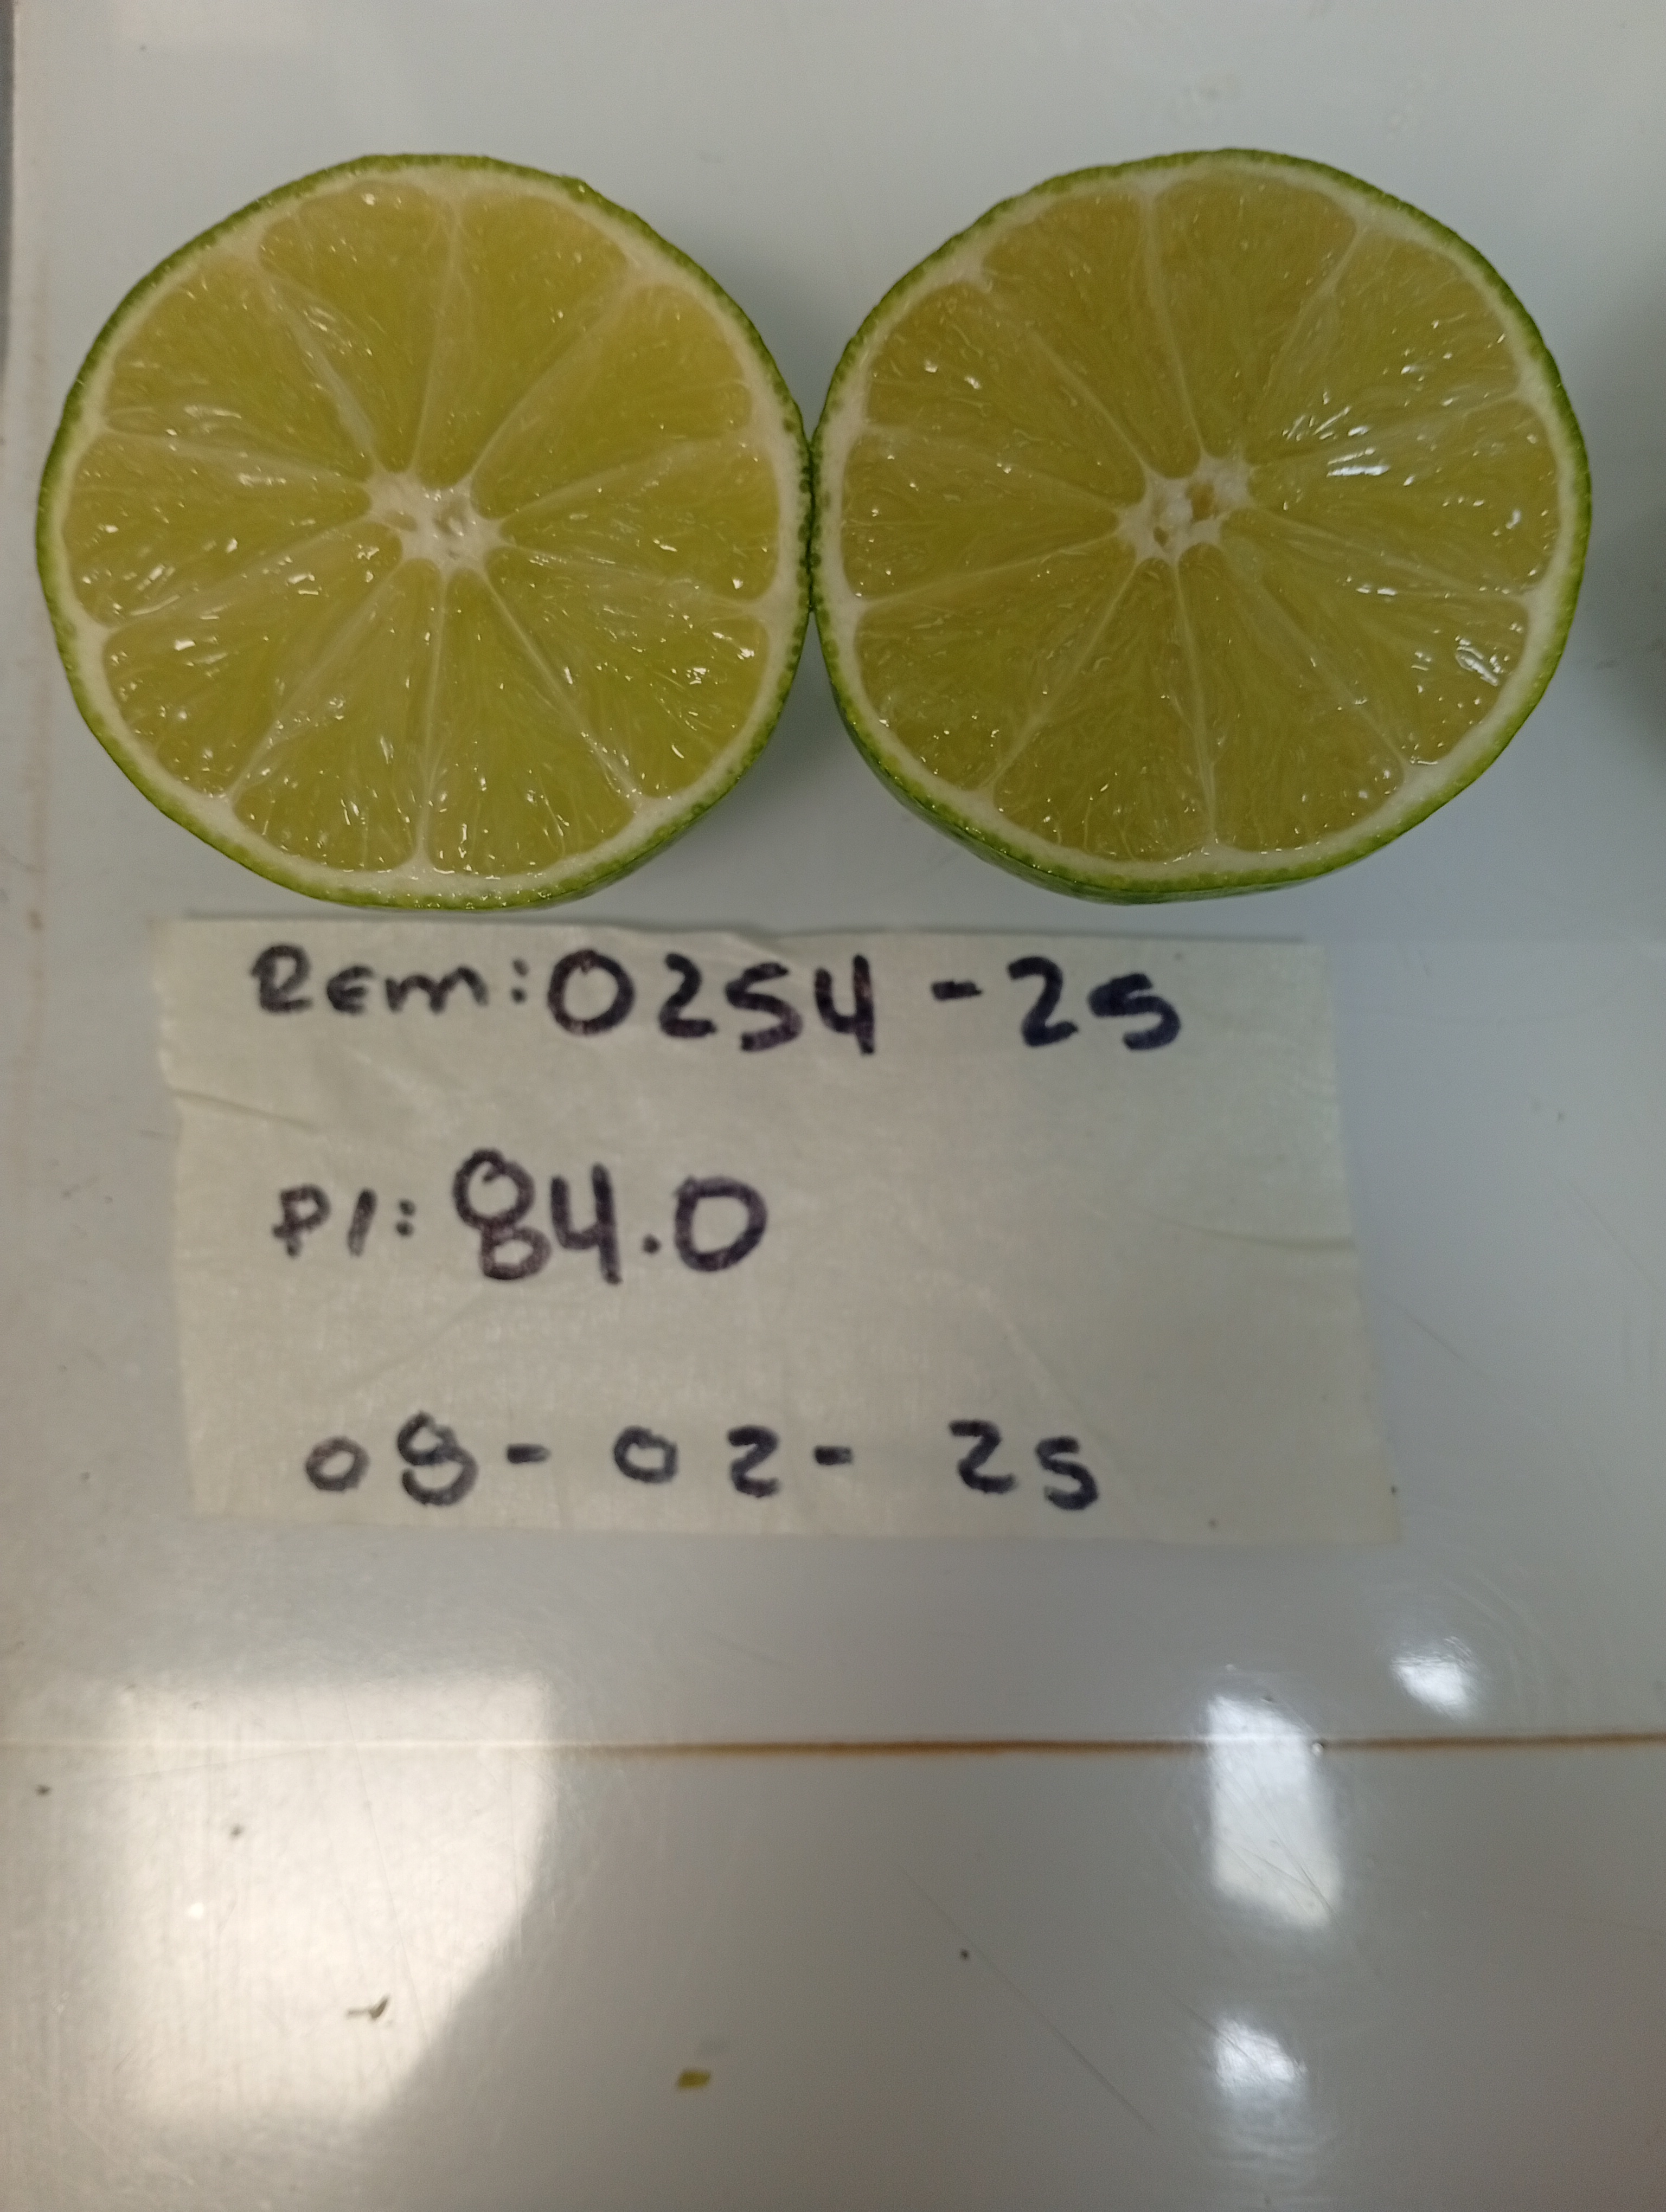 Rem: 0254-25
P1: 84.0
08-02-25